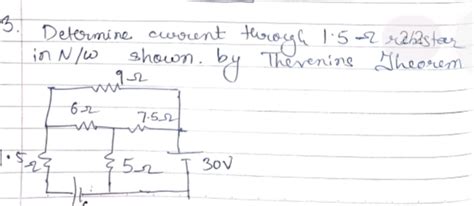 3. Determine current through 1.5-Ω
in N/W shown. by Thevenins Theorem
9Ω
6Ω
7.5Ω
1.5Ω
5Ω
30V